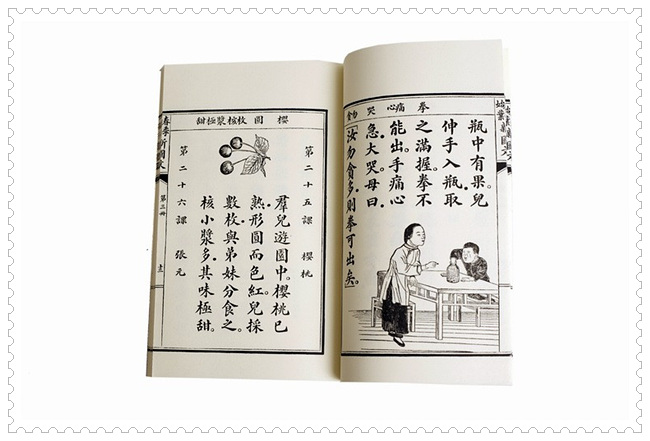 拳痛心哭勿貪
瓶中有果。兒
伸手入瓶。取
之滿握。拳不
能出。手痛心
急。大哭。母曰
「汝勿貪多。則拳可出矣。」
櫻圓枚核漿極甜
第二十五課 櫻桃
羣兒遊園中。櫻桃已
熟。形圓而色紅。兒採
數枚。與弟妹分食之。
核小漿多。其味極甜。
第二十六課 張元
第三冊